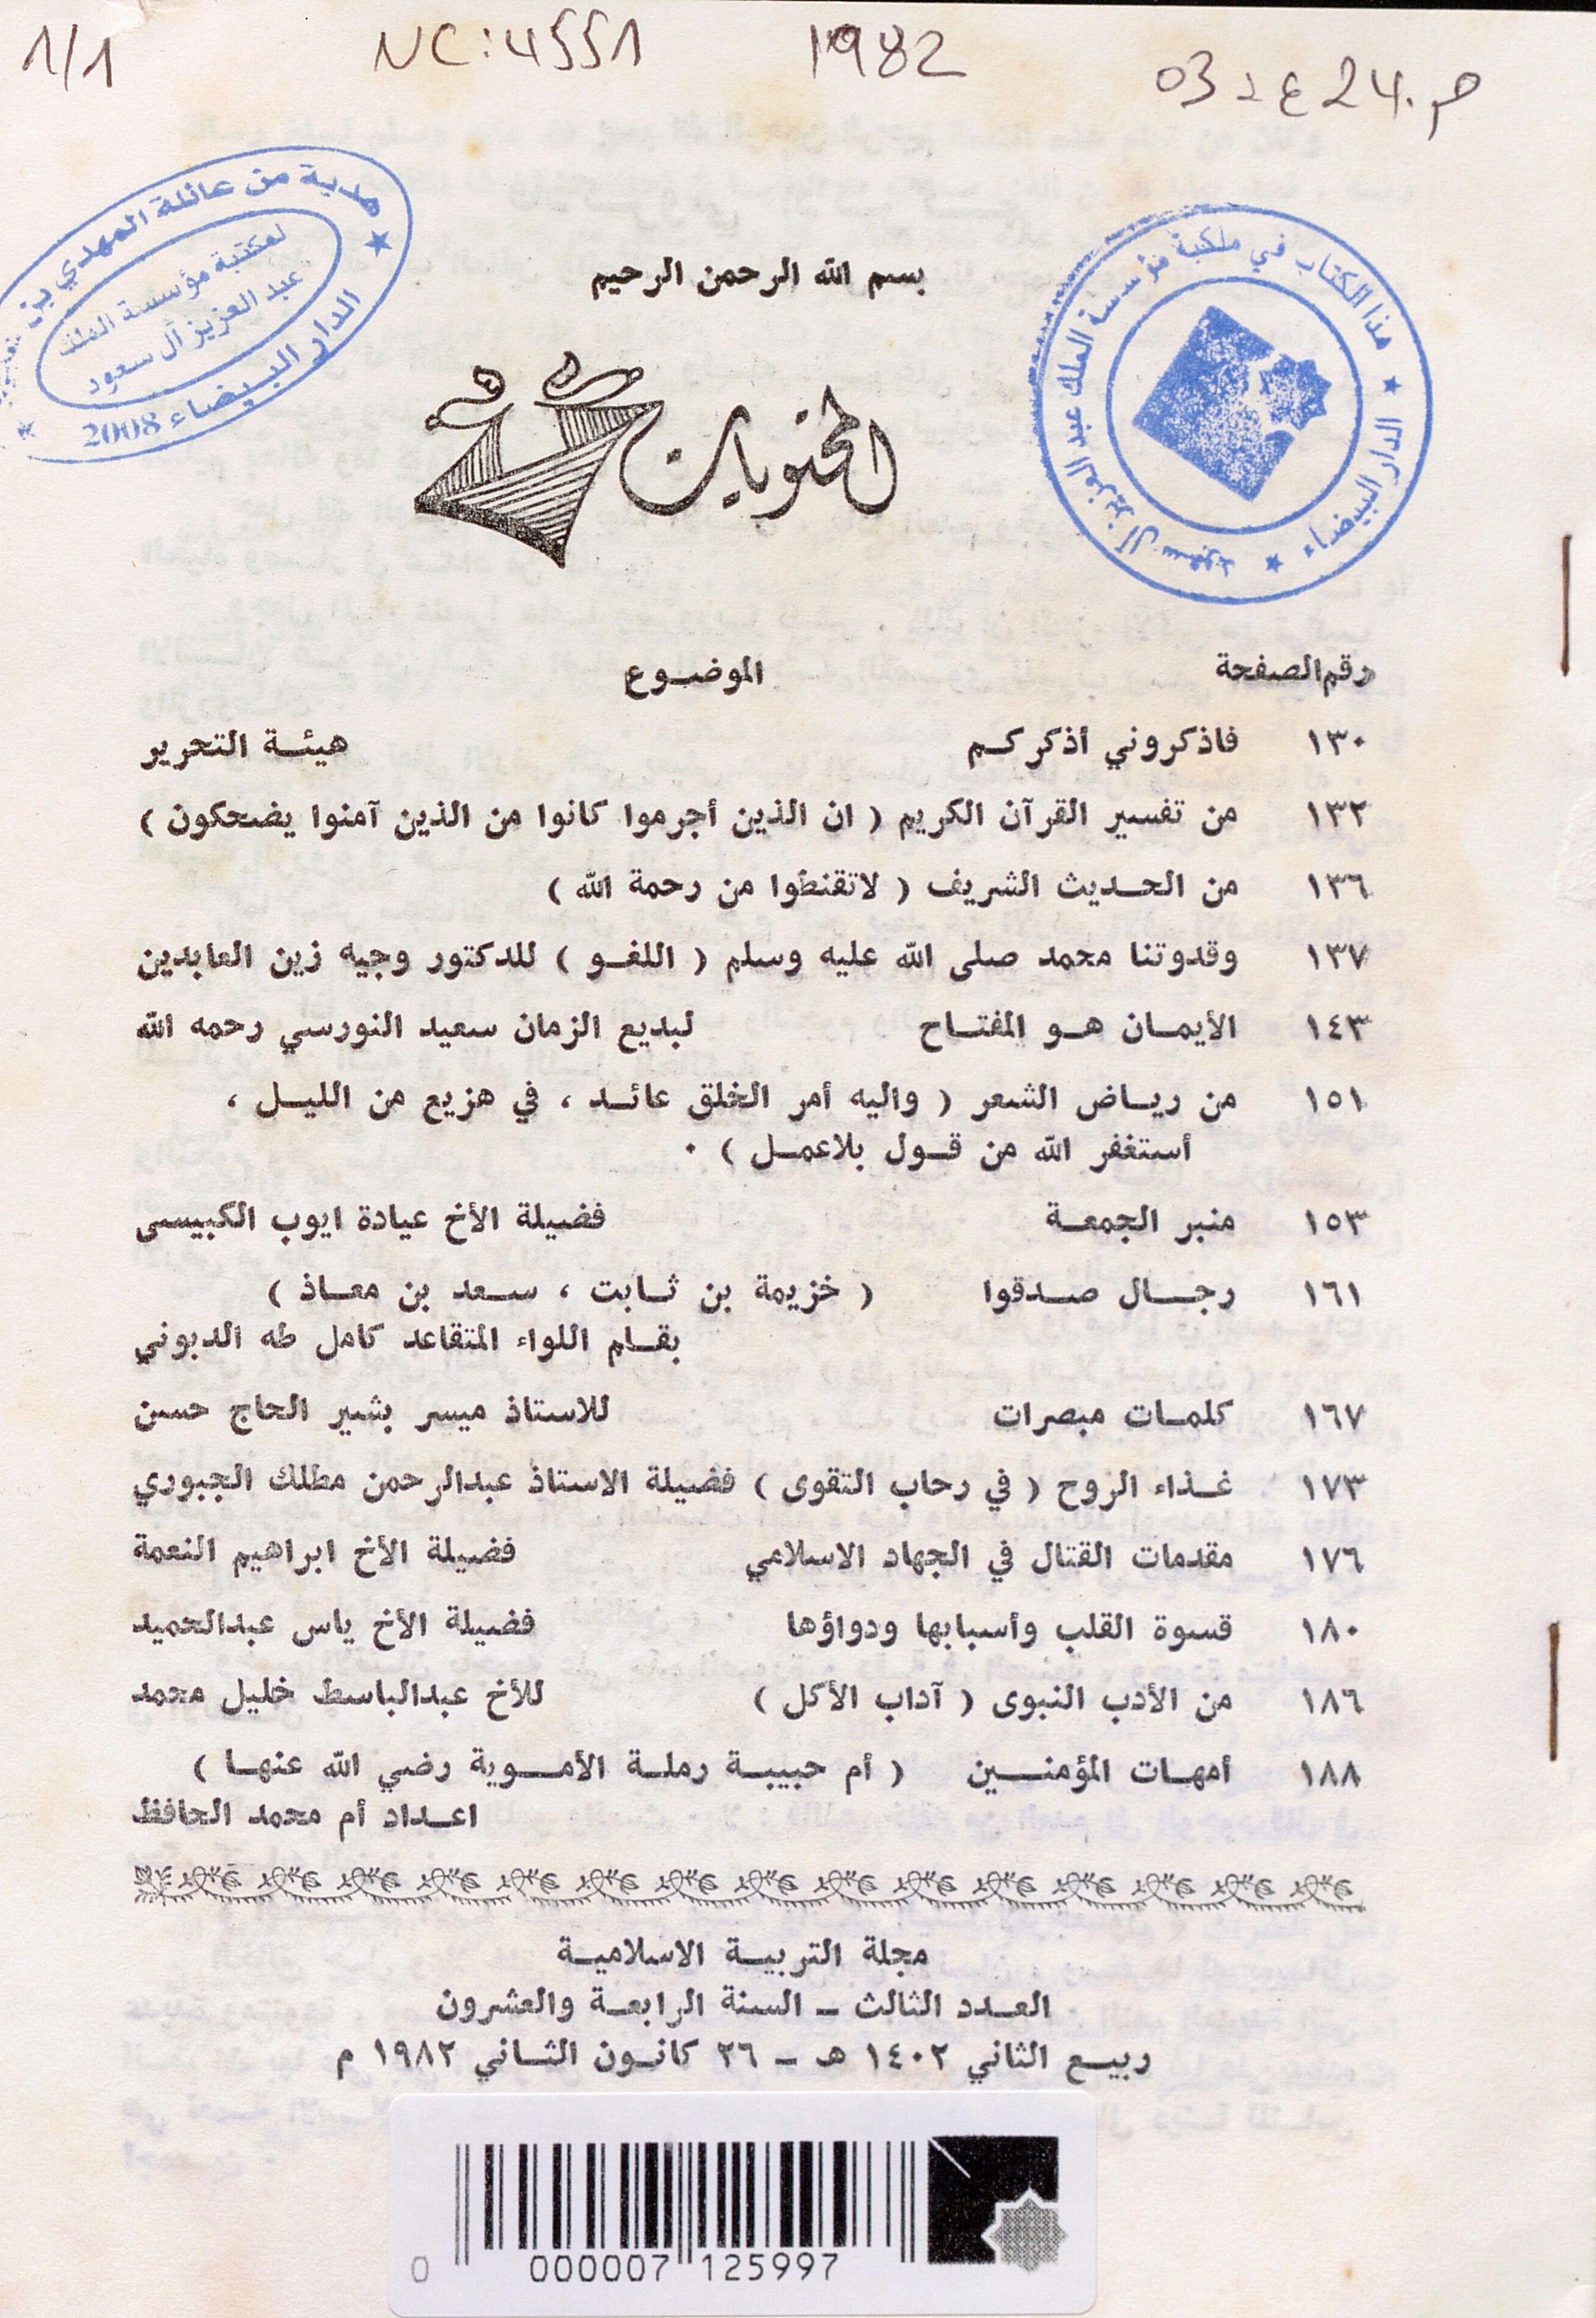 1/1 NC:4551 1982 03 24.م
هدية من عائلة المهدي بن
لمكتبة مؤسسة الملك
عبد العزيز آل سعود
الدار البيضاء 2008
هذا الكتاب في ملكية مؤسسة الملك عبد العزيز آل سعود
الدار البيضاء
بسم الله الرحمن الرحيم
المحتويات
رقم الصفحة الموضـوع
١٣٠ فاذكروني أذكركـم هيئـة التحرير
١٣٢ من تفسير القرآن الكريم ( ان الذين أجرموا كانوا من الذين آمنوا يضحكون )
١٣٦ من الحـديث الشريف ( لاتقنطوا من رحمة الله )
١٣٧ وقدوتنا محمد صلى الله عليه وسلم ( اللغـو ) للدكتور وجيه زين العابدين
١٤٣ الأيمـان هـو المفتـاح لبديع الزمان سعيد النورسي رحمه الله
١٥١ من ريـاض الشعر ( واليه أمر الخلق عائـد ، في هزيع من الليـل ،
أستغفر الله من قـول بلاعمـل ) ٠
١٥٣ منبر الجمعـة فضيلة الأخ عيادة ايوب الكبيسى
١٦١ رجـال صـدقوا ( خزيمة بن ثـابت ، سـعد بن معـاذ )
بقـلم اللواء المتقاعد كامل طه الدبوني
١٦٧ كلمـات مبصرات للاستاذ ميسر بشير الحاج حسن
١٧٣ غـذاء الروح ( في رحاب التقوى ) فضيلة الاستاذ عبدالرحمن مطلك الجبوري
١٧٦ مقدمات القتال في الجهاد الاسلامي فضيلة الأخ ابراهيم النعمة
١٨٠ قسوة القلب وأسبابها ودواؤها فضيلة الأخ ياس عبدالحميد
١٨٦ من الأدب النبوى ( آداب الأكل ) للأخ عبدالباسط خليل محمد
١٨٨ أمهـات المؤمنـين ( أم حبيبـة رملـة الأمـوية رضي الله عنهـا )
اعـداد أم محمد الحافظ
مجلة التربيـة الاسلاميـة
العـدد الثالث ـ السنة الرابعـة والعشرون
ربيـع الثاني ١٤٠٢ هـ ـ ٢٦ كانـون الثـاني ١٩٨٢ م
0 000007 125997